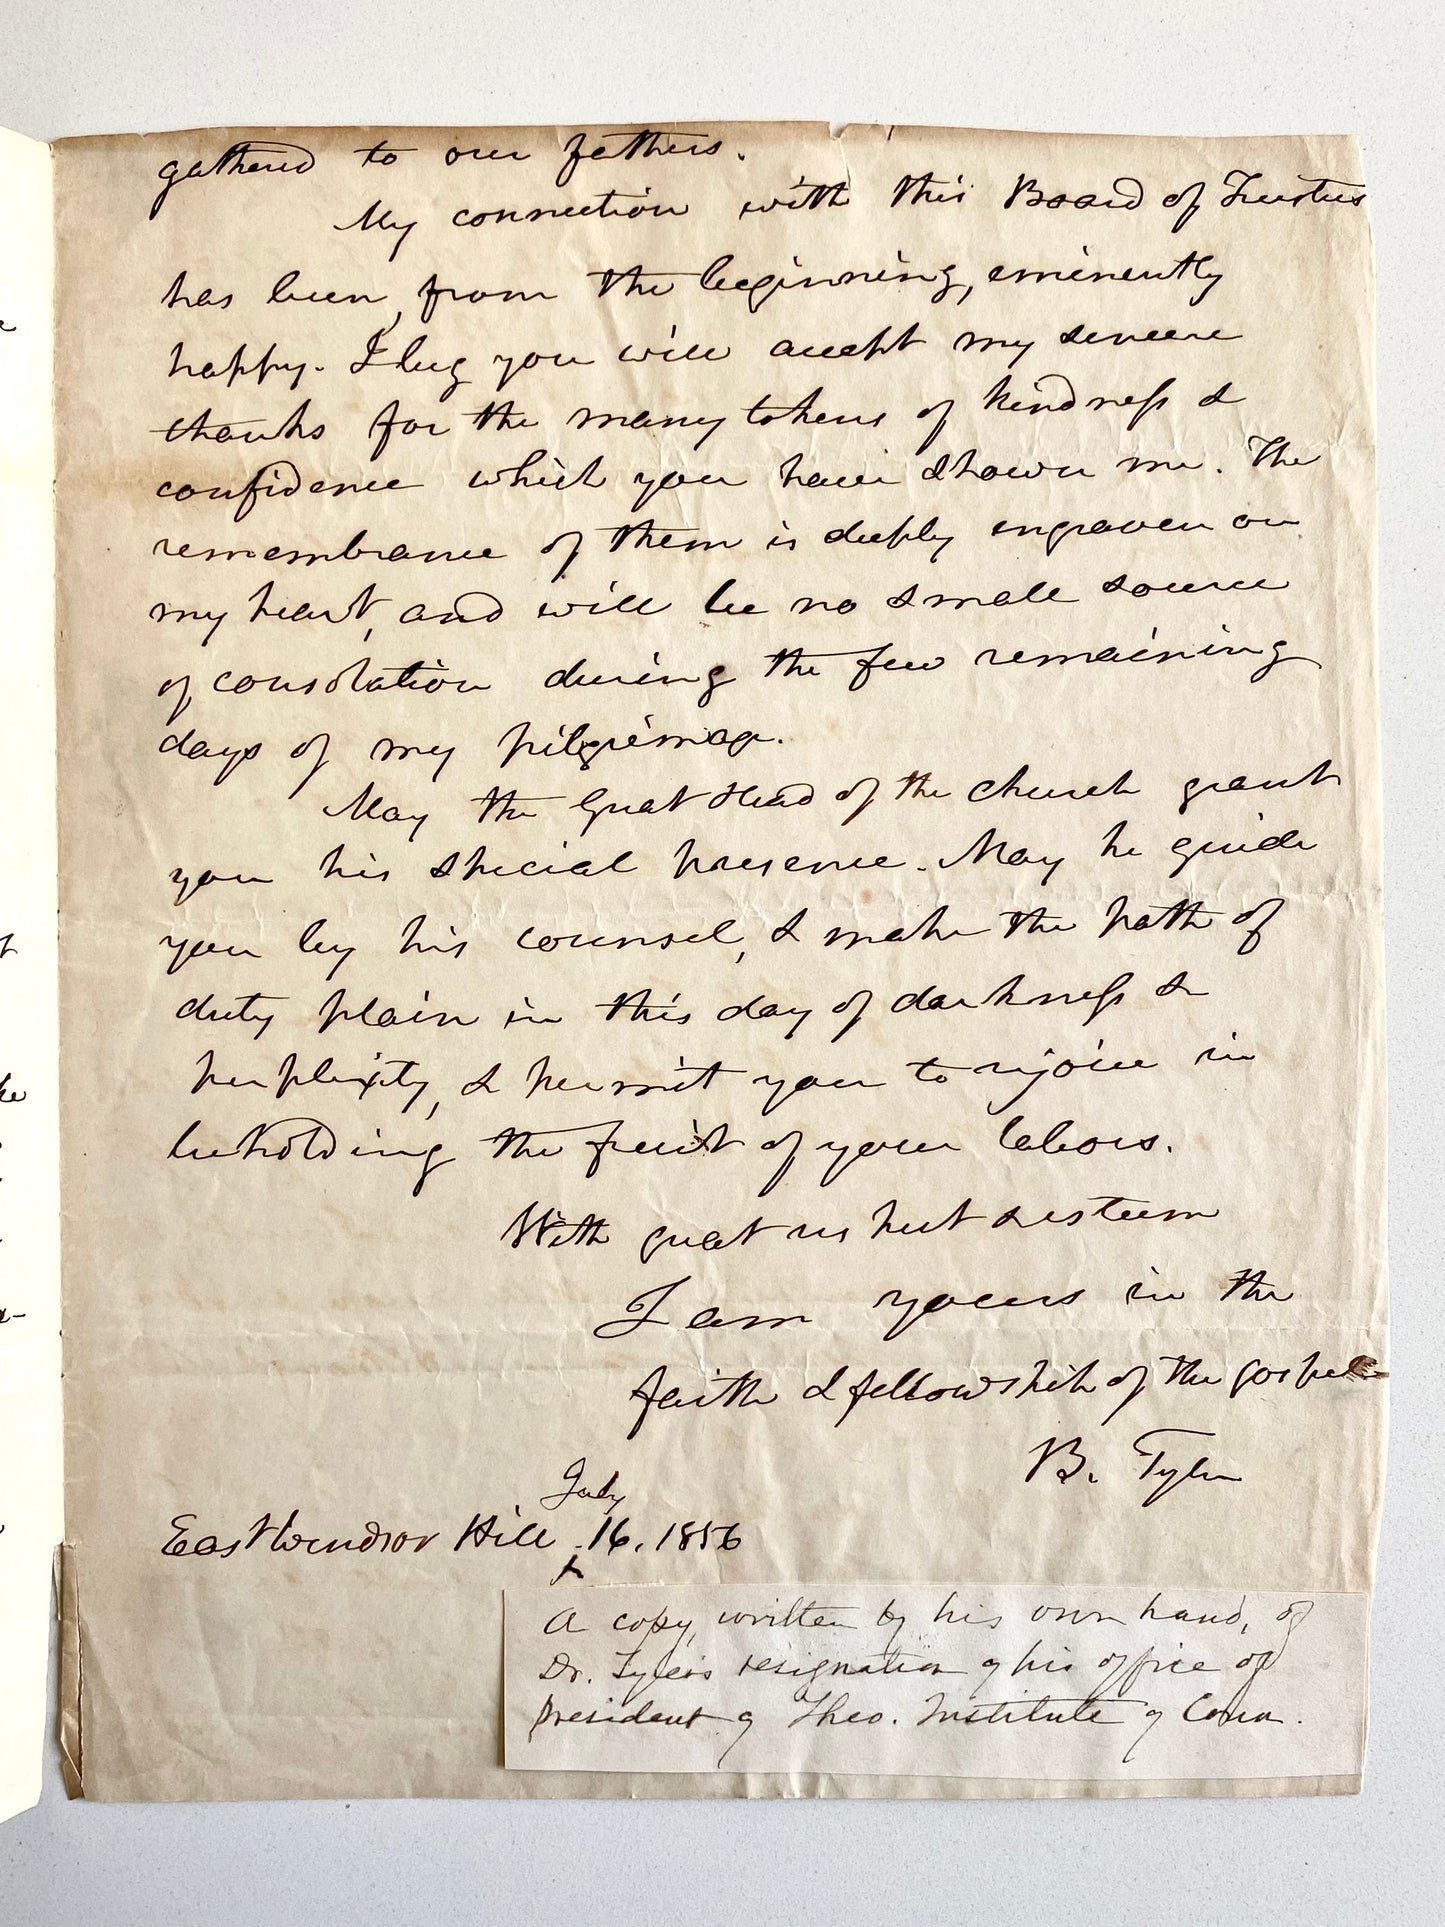 gathered to our fathers.
My connection with this Board of Trustees
has been, from the beginning, eminently
happy. I beg you will accept my sincere
thanks for the many tokens of kindness &
confidence which you have shown me. The
remembrance of them is deeply engraven on
my heart, and will be no small source
of consolation during the few remaining
days of my pilgrimage.
May the Great Head of the church grant
you his special presence. May he guide
you by his counsel, & make the path of
duty plain in this day of darkness &
perplexity, & permit you to rejoice in
beholding the fruit of your labors.
With great respect & esteem
I am yours in the
faith & fellowship of the gospel
B. Tyler
July
East Windsor Hill 16. 1856
A copy, written by his own hand, of
Dr. Tyler's resignation of his office of
president of Theo. Institute of Conn.